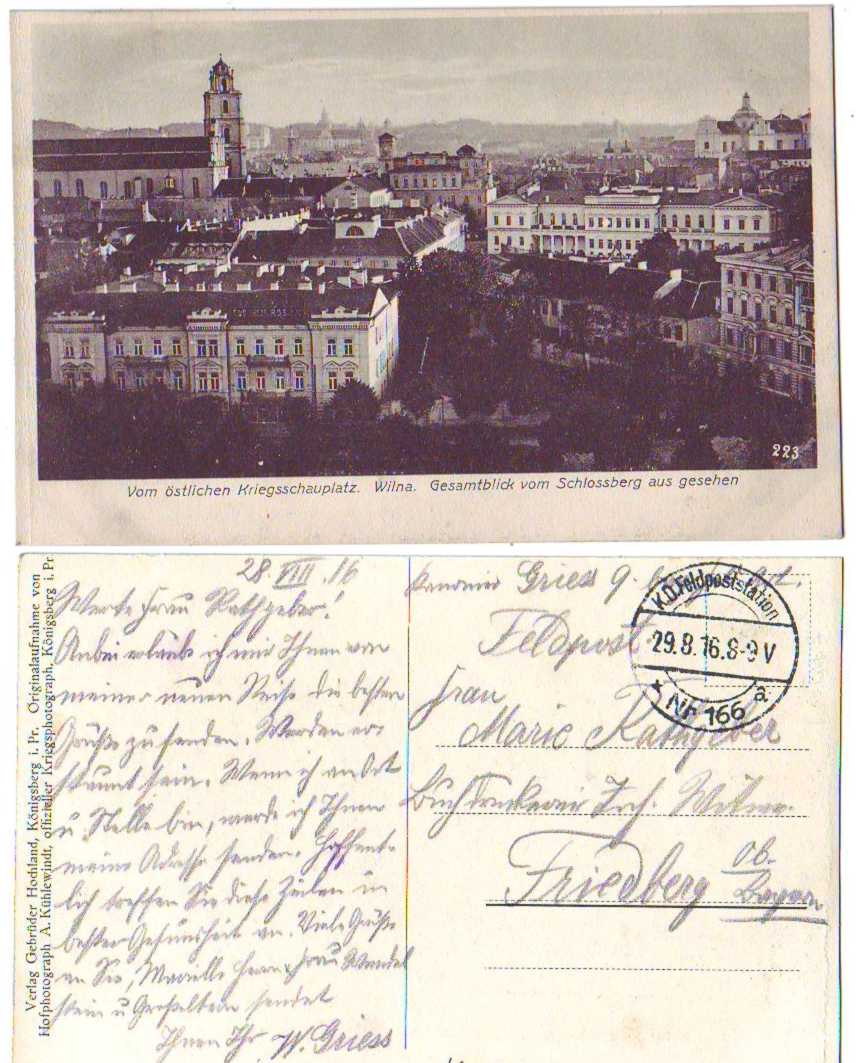 223
Vom östlichen Kriegsschauplatz. Wilna. Gesamtblick vom Schlossberg aus gesehen
Verlag Gebrüder Hochland, Königsberg i. Pr. Originalaufnahme von
Hofphotograph A. Kühlewindt, offizieller Kriegsphotograph, Königsberg i. Pr.
28. VIII. 16
Werte Frau Rathgeber!
Anbei erlaube ich mir Ihnen von
meiner neuen Reise die besten
Grüße zu senden. Werden er-
staunt sein. Wenn ich an Ort
u. Stelle bin, werde ich Ihnen
meine Adresse senden. Hoffent-
lich treffen Sie diese Zeilen in
bester Gesundheit an. Viele Grüße
an Sie, Frau Wendel
stein u Großeltern sendet
Ihnen Ihr W. Griess
Kanonier Griess 9.
Feldpost
K.D. Feldpoststation
29.8.16. 8-9 V
* Nr 166 a
Frau
Marie Rathgeber
Buchdruckerei
Friedberg
Ob.
Bayern